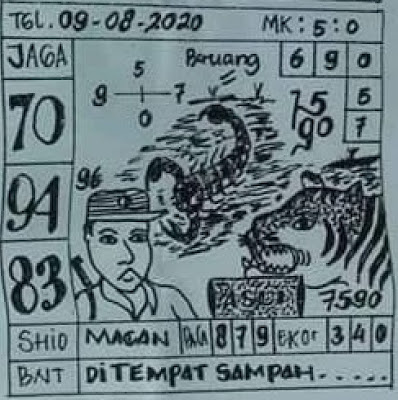 TGL. 09-08-2020 MK: 5: 0
JAGA
5
Beruang
6 9 0
9 7
0
75
90
5
7
70
96
94
83
ASLI
7590
SHIO MACAN 8 7 9 EKOR 3 4 0
BNT DITEMPAT SAMPAH.....